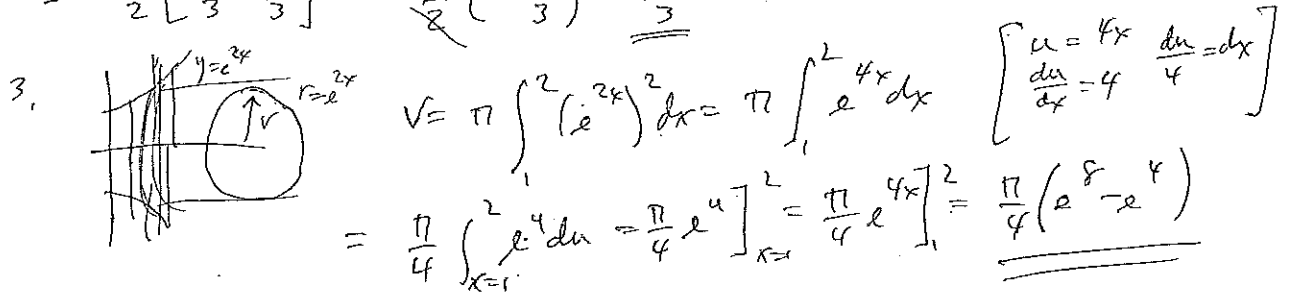 2 [ 3 3 ] 2 ( 3 ) 3
3. y=e^{2x} r=e^{2x} r V = π ∫_1^2 (e^{2x})^2 dx = π ∫_1^2 e^{4x} dx [ u = 4x du/dx = 4 du/4 = dx ]
= π/4 ∫_{x=1}^2 e^u du = π/4 e^u ]_{x=1}^2 = π/4 e^{4x} ]_1^2 = π/4 (e^8 - e^4)